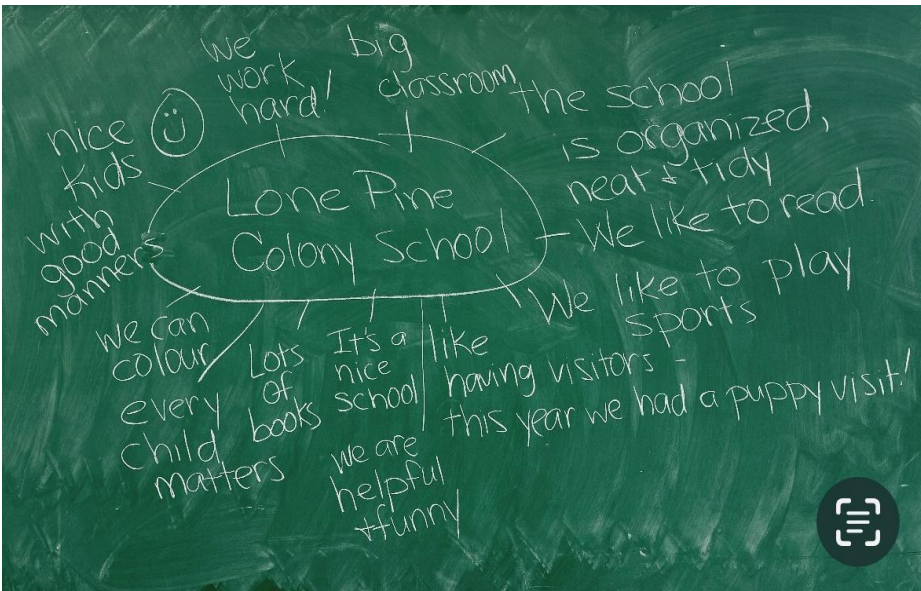 Lone Pine
Colony School
we
work
hard!
big
classroom
the school
is organized,
neat + tidy
We like to read.
We like to play
sports
like
having visitors -
this year we had a puppy visit!
It's a
nice
school
we are
helpful
+funny
Lots
of
books
every
child
matters
we can
colour
nice
kids
with
good
manners